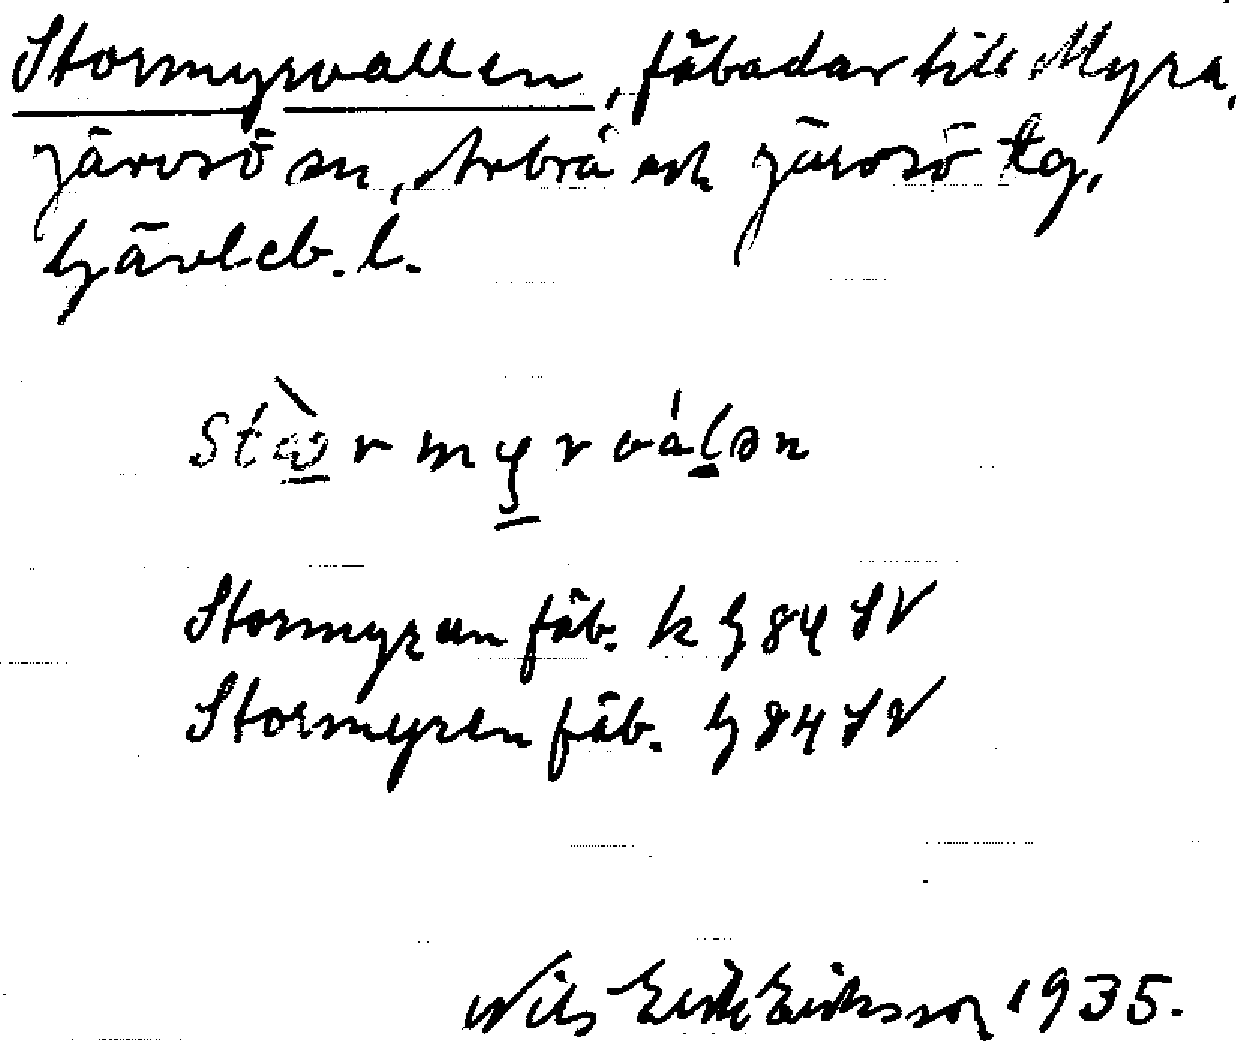 Stormyrvallen, fäbodar till Myra,
Järvsö sn, Arbrå och Järvsö tg,
Gävleb. l.
Stormyrválən
Stormyran fäb. k G 84 SV
Stormyren fäb. G 84 SV
Nils Erik Eriksson 1935.